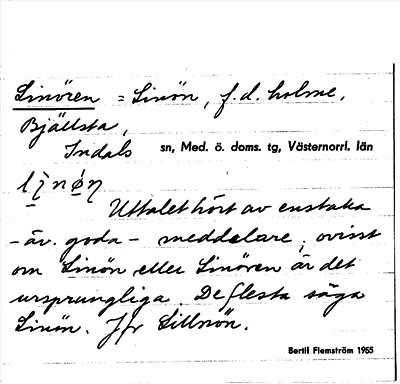 Linören = Linön, f.d. holme,
Bjällsta,
Indals sn, Med. ö. doms. tg, Västernorrl. län
Uttalet hört av enstaka
- äv. goda - meddelare; ovisst
om Linön eller Linören är det
ursprungliga. De flesta säga
Linön. Jfr Lillnön.
Bertil Flemström 1965